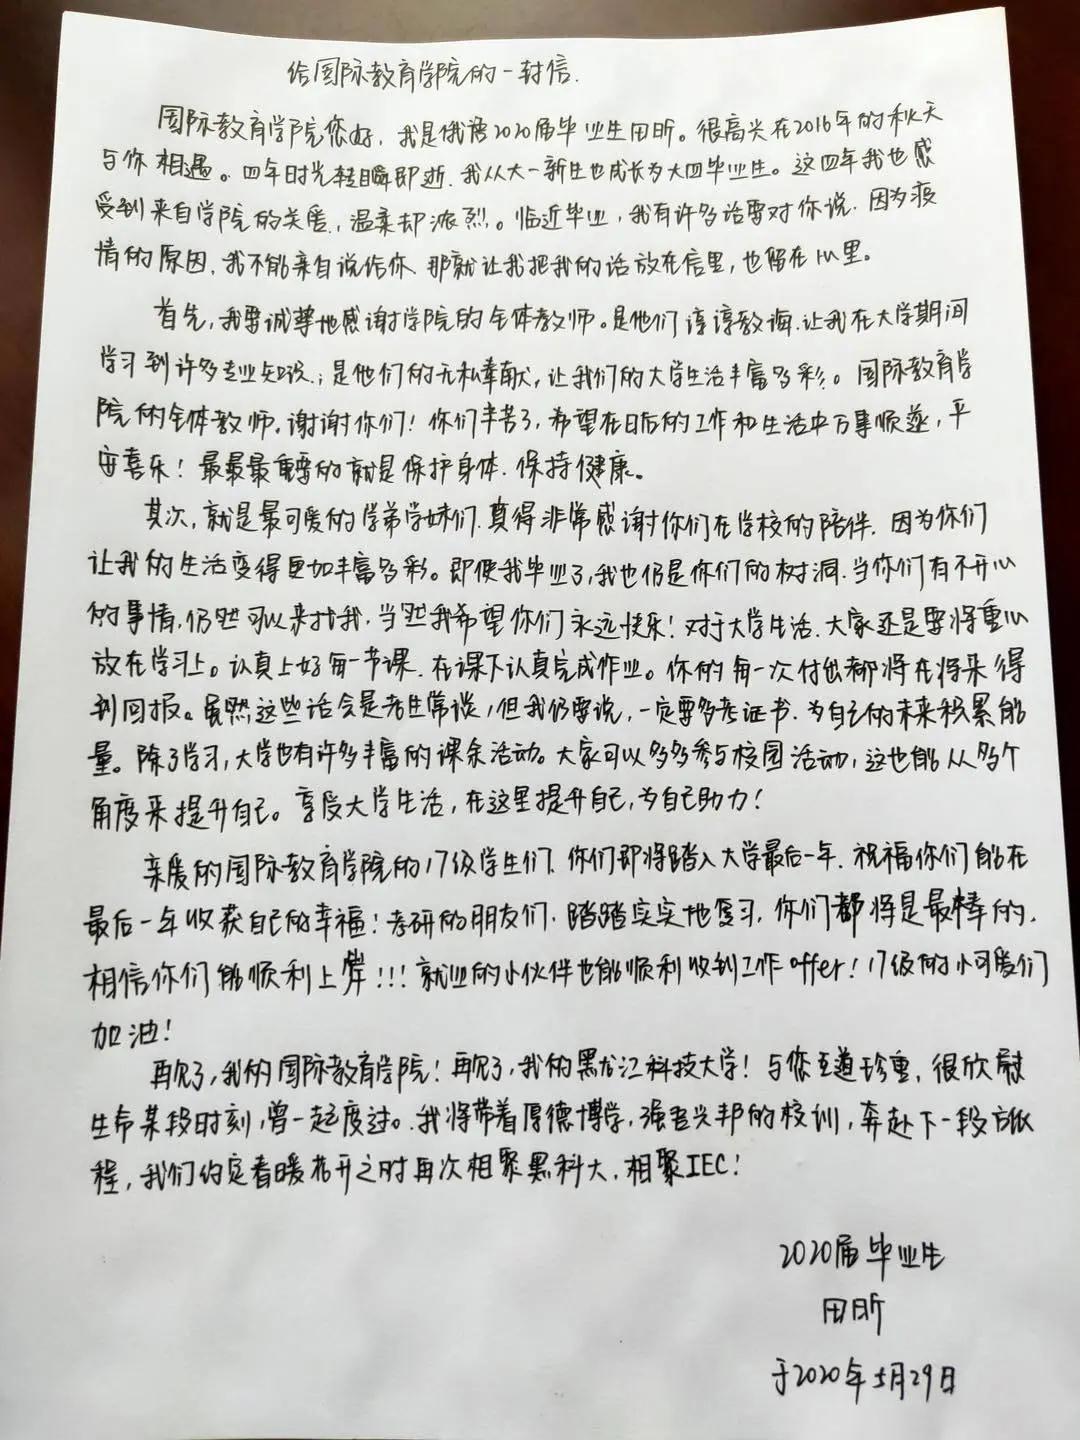 给国际教育学院的一封信.
国际教育学院您好，我是俄语2020届毕业生田昕。很高兴在2016年的秋天
与你相遇。四年时光转瞬即逝.我从大一新生也成长为大四毕业生。这四年我也感
受到来自学院的关爱，温柔却浓烈。临近毕业，我有许多话要对你说.因为疫
情的原因.我不能亲自说给你.那就让我把我的话放在信里，也留在心里。
首先，我要诚挚地感谢学院的全体教师。是他们谆谆教诲.让我在大学期间
学习到许多专业知识；是他们的无私奉献，让我们的大学生活丰富多彩。国际教育学
院的全体教师.谢谢你们！你们辛苦了，希望在日后的工作和生活中万事顺遂，平
安喜乐！最最最重要的就是保护身体.保持健康。
其次，就是最可爱的学弟学妹们.真得非常感谢你们在学校的陪伴.因为你们
让我的生活变得更加丰富多彩。即使我毕业了，我也仍是你们的树洞.当你们有不开心
的事情，仍然可以来找我，当然我希望你们永远快乐！对于大学生活.大家还是要将重心
放在学习上。认真上好每一节课.在课下认真完成作业。你的每一次付出都将在将来得
到回报。虽然这些话会是老生常谈，但我仍要说，一定要多考证书.为自己的未来积累能
量。除了学习，大学也有许多丰富的课余活动。大家可以多多参与校园活动，这也能从多个
角度来提升自己。享受大学生活，在这里提升自己，为自己助力！
亲爱的国际教育学院的17级学生们.你们即将踏入大学最后一年.祝福你们能在
最后一年收获自己的幸福！考研的朋友们.踏踏实实地复习，你们都将是最棒的.
相信你们能顺利上岸！！！就业的小伙伴也能顺利收到工作offer！17级的小可爱们
加油！
再见了，我的国际教育学院！再见了，我的黑龙江科技大学！与您互道珍重，很欣慰
生命某段时刻，曾一起度过。我将带着厚德博学，强吾兴邦的校训，奔赴下一段旅
程，我们约定春暖花开之时再次相聚黑科大.相聚IEC！
2020届毕业生
田昕
于2020年5月29日